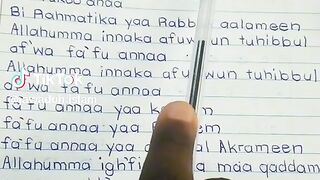 Bi Rahmatika yaa Rabb aalameen
Allahumma innaka afuw tuhibbul
af'wa fa'fu annaa
Allahumma innaka afu wun tuhibbul
af'wa fa'fu annaa
fa'fu annaa yaa
fa'fu annaa yaa
fa'fu annaa yaa Akrameen
Allahumma maa qaddam
TikTok